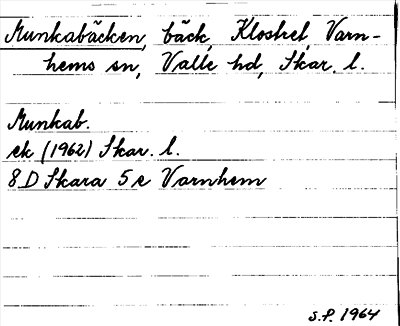 Munkabäcken, bäck, Klostret, Varn-
hems sn, Valle hd, Skar. l.
Munkab.
ek (1962) Skar. l.
8 D Skara 5 e Varnhem
S.P. 1964